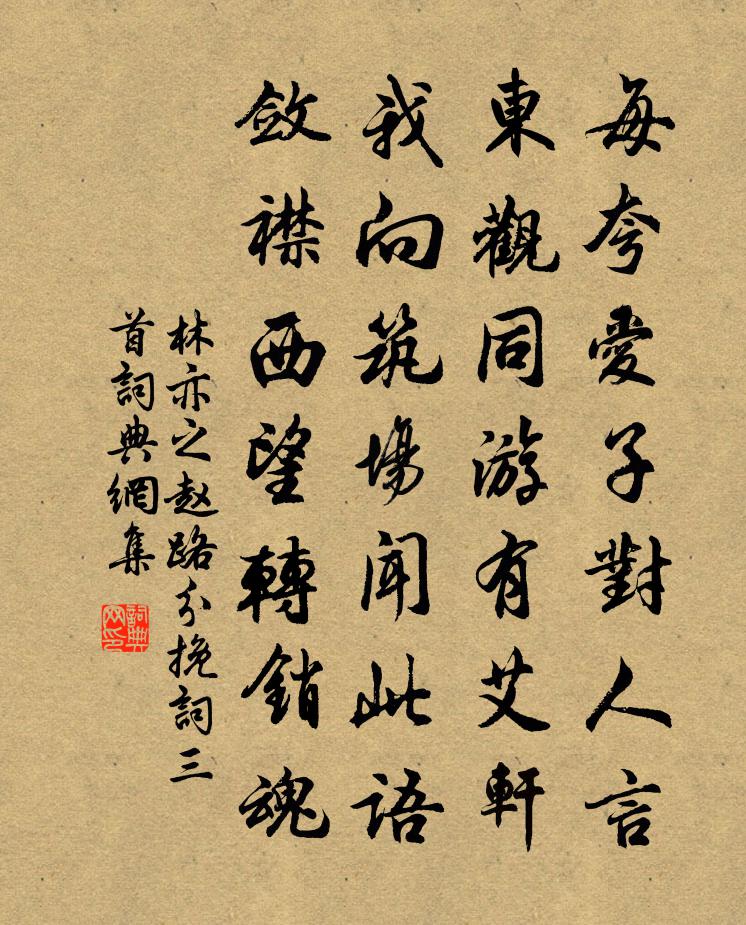 每夸愛子對人言
東觀同游有艾軒
我向筑場聞此語
斂襟西望轉銷魂
林亦之趙路分挽詞三
首詞典網集
詞典网印